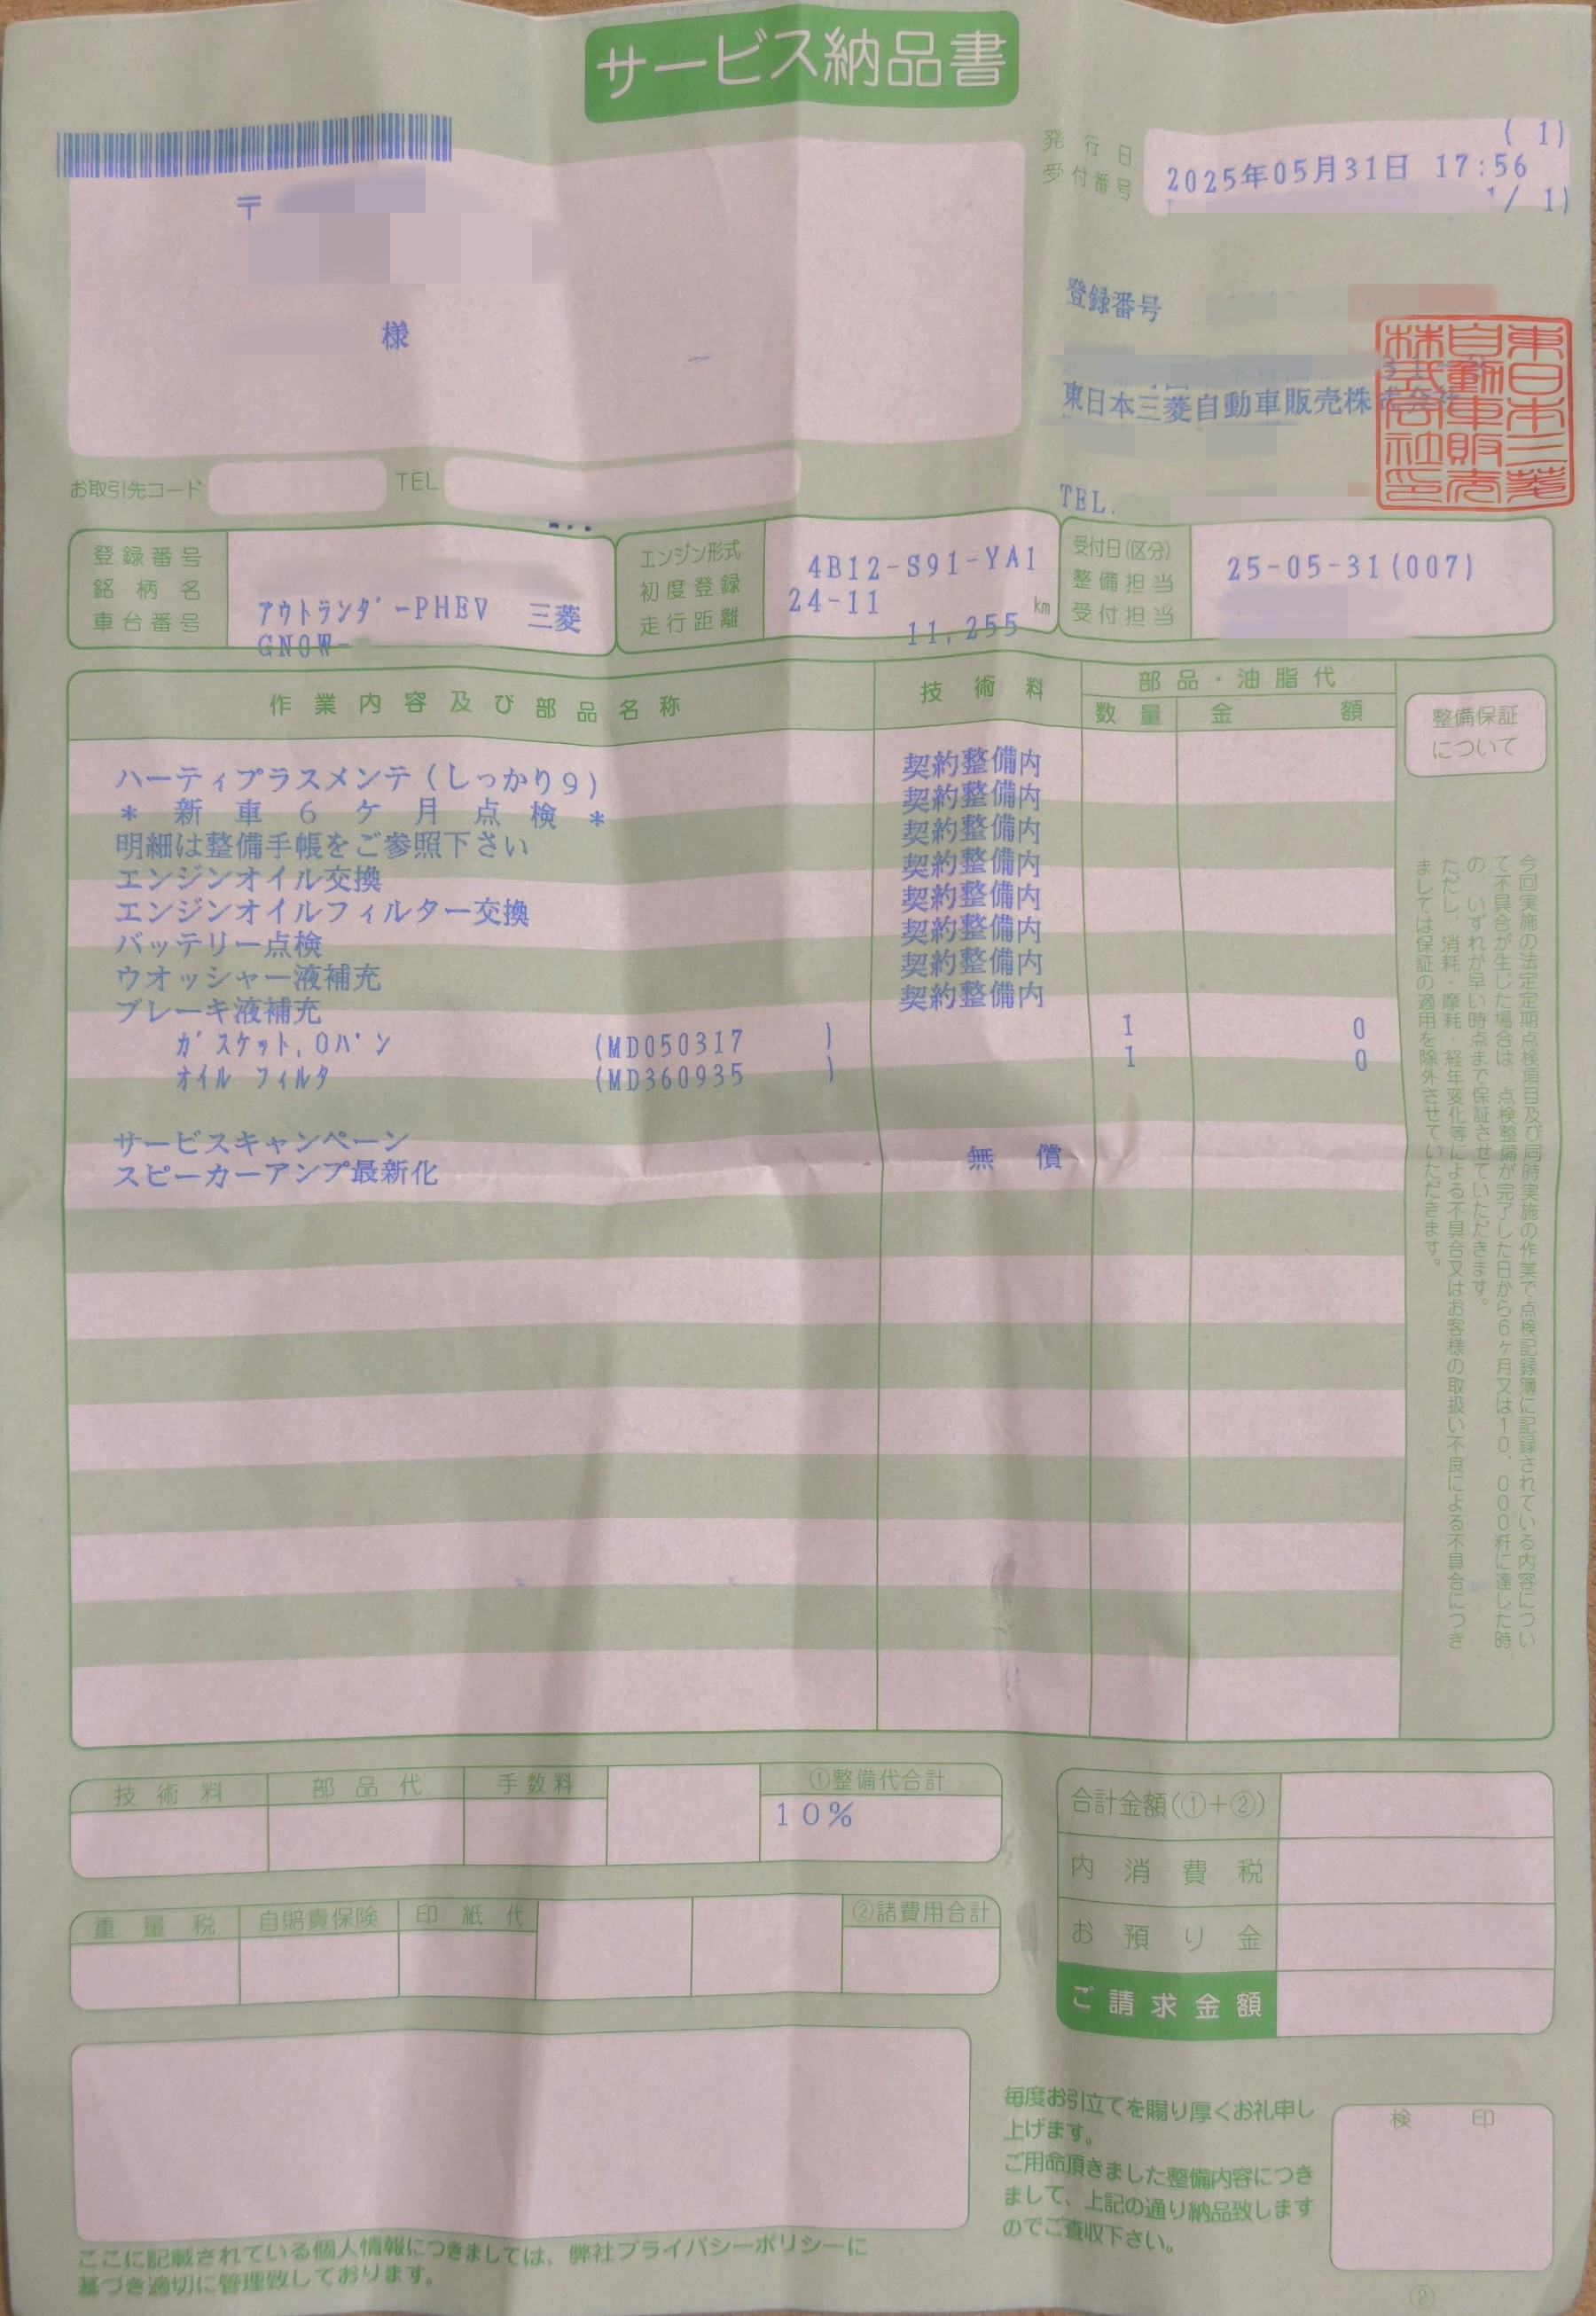 サービス納品書
( 1)
発行日 2025年05月31日 17:56
受付番号 1/ 1)
〒
様
登録番号
東日本三菱自動車販売株式会社
東日本三菱自動車販売株式会社印
TEL.
お取引先コード TEL
登録番号
銘柄名 アウトランダーPHEV 三菱
車台番号 GN0W-
エンジン形式 4B12-S91-YA1
初度登録 24-11
走行距離 11,255 km
受付日(区分) 25-05-31(007)
整備担当
受付担当
作業内容及び部品名称 技術料 部品・油脂代
数量 金額
整備保証について
ハーティプラスメンテ(しっかり9) 契約整備内
* 新車6ケ月点検 * 契約整備内
明細は整備手帳をご参照下さい 契約整備内
エンジンオイル交換 契約整備内
エンジンオイルフィルター交換 契約整備内
バッテリー点検 契約整備内
ウオッシャー液補充 契約整備内
ブレーキ液補充 契約整備内
ガスケット,Oパン (MD050317 ) 1 0
オイル フィルタ (MD360935 ) 1 0
サービスキャンペーン
スピーカーアンプ最新化 無償
今回実施の法定定期点検項目及び同時実施の作業で点検記録簿に記録されている内容につい
て不具合が生じた場合は、点検整備が完了した日から6ヶ月又は10,000粁に達した時
の、いずれか早い時点まで保証させていただきます。
ただし、消耗・摩耗・経年変化等による不具合又はお客様の取扱い不良による不具合につき
ましては保証の適用を除外させていただきます。
技術料 部品代 手数料 ①整備代合計
10%
重量税 自賠責保険 印紙代 ②諸費用合計
合計金額(①+②)
内消費税
お預り金
ご請求金額
毎度お引立てを賜り厚くお礼申し
上げます。
ご用命頂きました整備内容につき
まして、上記の通り納品致します
のでご査収下さい。
検印
ここに記載されている個人情報につきましては、弊社プライバシーポリシーに
基づき適切に管理致しております。
②